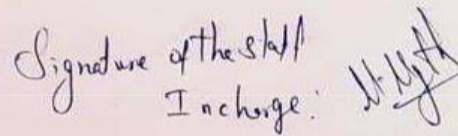 Signature of the Staff
Incharge: